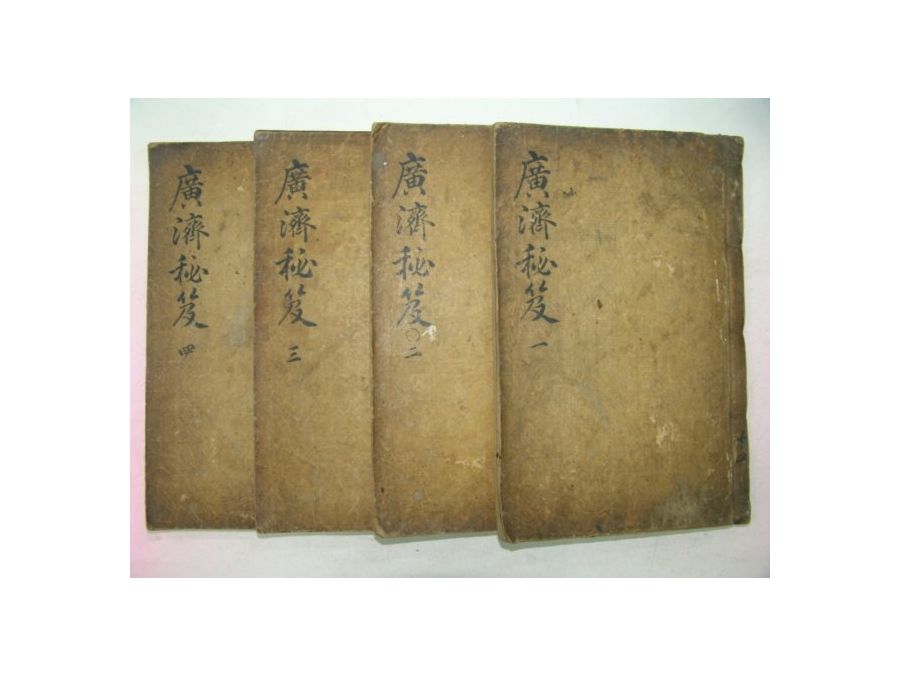 廣濟秘笈 一
廣濟秘笈 〇二
廣濟秘笈 三
廣濟秘笈 四